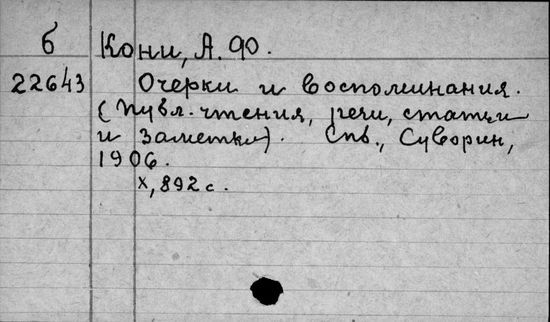 б Кони, А. Ф.
22643 Очерки и воспоминания.
(Публ. чтения, речи, статьи
и заметки). Спб., Суворин,
1906.
X, 892 с.